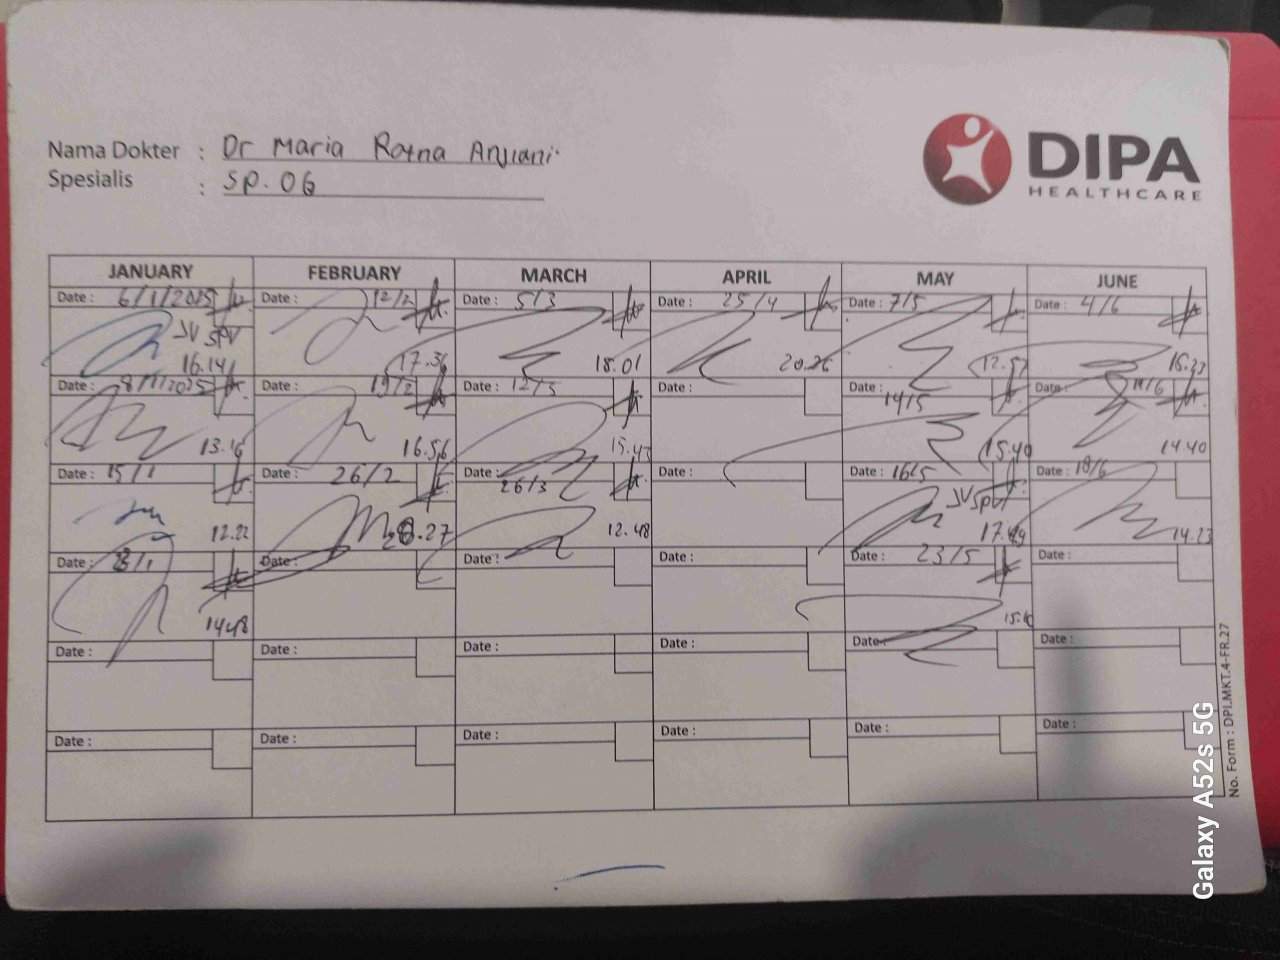 Nama Dokter : Dr Maria Ratna Anjiani
Spesialis : SP. OG
DIPA
HEALTHCARE
JANUARY FEBRUARY MARCH APRIL MAY JUNE
Date : 6/1/2025 Date : 12/2 Date : 5/3 Date : 25/4 Date : 7/5 Date : 4/6
JV SPV
16.14 17.36 18.01 20.26 12.57
Date : 8/1/2025 Date : 19/2 Date : 12/3 Date : Date : 14/5 Date : 11/6
13.16 16.56 15.47 15.40 14.40
Date : 15/1 Date : 26/2 Date : 26/3 Date : Date : 16/5 Date : 18/6
JV SPV
12.22 12.48 14.23
Date : Date : Date : Date : Date : 23/5 Date :
14.48
Date : Date : Date : Date : Date : Date :
Date : Date : Date : Date : Date : Date :
No. Form : DPI.MKT.4-FR.27
Galaxy A52s 5G